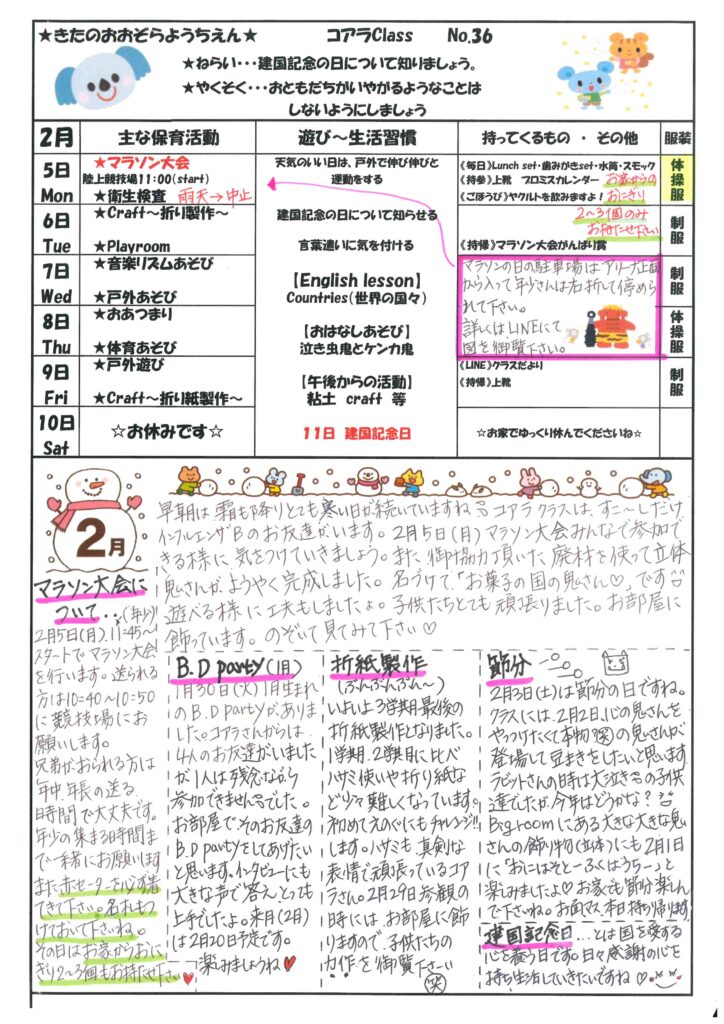 ★きたのおおぞらようちえん★ コアラClass No.36
★ねらい・・・建国記念の日について知りましょう。
★やくそく・・・おともだちがいやがるようなことは
しないようにしましょう
2月 主な保育活動 遊び～生活習慣 持ってくるもの ・ その他 服装
5日 Mon
★マラソン大会
陸上競技場11:00(start)
★衛生検査 雨天→中止
天気のいい日は、戸外で伸び伸びと
運動をする
《毎日》Lunch set・歯みがきset・水筒・スモック
《持参》上靴 プロミスカレンダー お家からの
《ごほうび》ヤクルトを飲みますよ! おにぎり
2～3個のみ
お持たせ下さい
体操服
6日 Tue
★Craft～折り製作～
★Playroom
建国記念の日について知らせる
言葉遣いに気を付ける
《持帰》マラソン大会がんばり賞
制服
7日 Wed
★音楽リズムあそび
★戸外あそび
【English lesson】
Countries(世界の国々)
マラソンの日の駐車場はアリーナ正面
から入って年少さんは右折して停めら
れて下さい。
詳しくはLINEにて
図を御覧下さい。
制服
8日 Thu
★おあつまり
★体育あそび
【おはなしあそび】
泣き虫鬼とケンカ鬼
体操服
9日 Fri
★戸外遊び
★Craft～折り紙製作～
【午後からの活動】
粘土 craft 等
《LINE》クラスだより
《持帰》上靴
制服
10日 Sat
☆お休みです☆
11日 建国記念日
☆お家でゆっくり休んでくださいね☆
2月
早朝は霜も降りとても寒い日が続いていますね。コアラクラスは、すこ～しだけ
インフルエンザBのお友達がいます。2月5日(月)マラソン大会みんなで参加で
きる様に気をつけていきましょう。また、御協力頂いた廃材を使って立体
鬼さんが、ようやく完成しました。名づけて、「お菓子の国の鬼さん♡」です
遊べる様に工夫もしましたよ。子供たちとても頑張りました。お部屋に
飾っています。のぞいて見てみて下さい♡
マラソン大会に
ついて・・(年少)
2月5日(月)、11:45～
スタートでマラソン大会
を行います。送られる
方は10:40～10:50
に競技場にお
願いします。
兄弟がおられる方は
年中、年長の送る
時間で大丈夫です。
年少の集まる時間ま
で一緒にお願いします
また赤セーターを必ず着
てきて下さい。名札もつ
けておいて下さいね。
その日はお家からおに
ぎり2～3個もお持たせ下さい
B.D party(1月)
1月30日(火)1月生まれ
のB.D partyがありま
した。コアラさんからは
4人のお友達がいました
が1人は残念ながら
参加できませんでした。
お部屋でそのお友達の
B.D partyをしてあげたい
と思います。インタビューにも
大きな声で答え、とっても
上手でしたよ。来月(2月)
は2月20日予定です。
楽しみましょうね♥
折紙製作
(ぶんぶんぶん～)
いよいよ3学期最後の
折紙製作となりました。
1学期、2学期に比べ
ハサミ使いや折り紙な
ど少々難しくなっています。
初めてえのぐにもチャレンジ!!
します。ハサミも真剣な
表情で頑張っているコア
ラさん。2月29日参観の
時にはお部屋に飾
りますので、子供たちの
力作を御覧下さーい
(笑)
節分
2月3日(土)は節分の日ですね。
クラスには、2月2日、心の鬼さんを
やっつけたくて本物(笑)の鬼さんが
登場して豆まきをしたいと思います
ラビットさんの時は大泣きの子供
達でしたが今年はどうかな?
Big roomにある大きな大きな鬼
さんの飾り物(立体)にも2月1日
に「おにはそと～ふくはうち～」と
楽しみましたよ♡お家でも節分楽しん
で下さいね。お面、マス、本日持ち帰ります
建国記念日・・・とは国を愛する
心を養う日です。日々感謝の心を
持ち生活していきたいですね♡